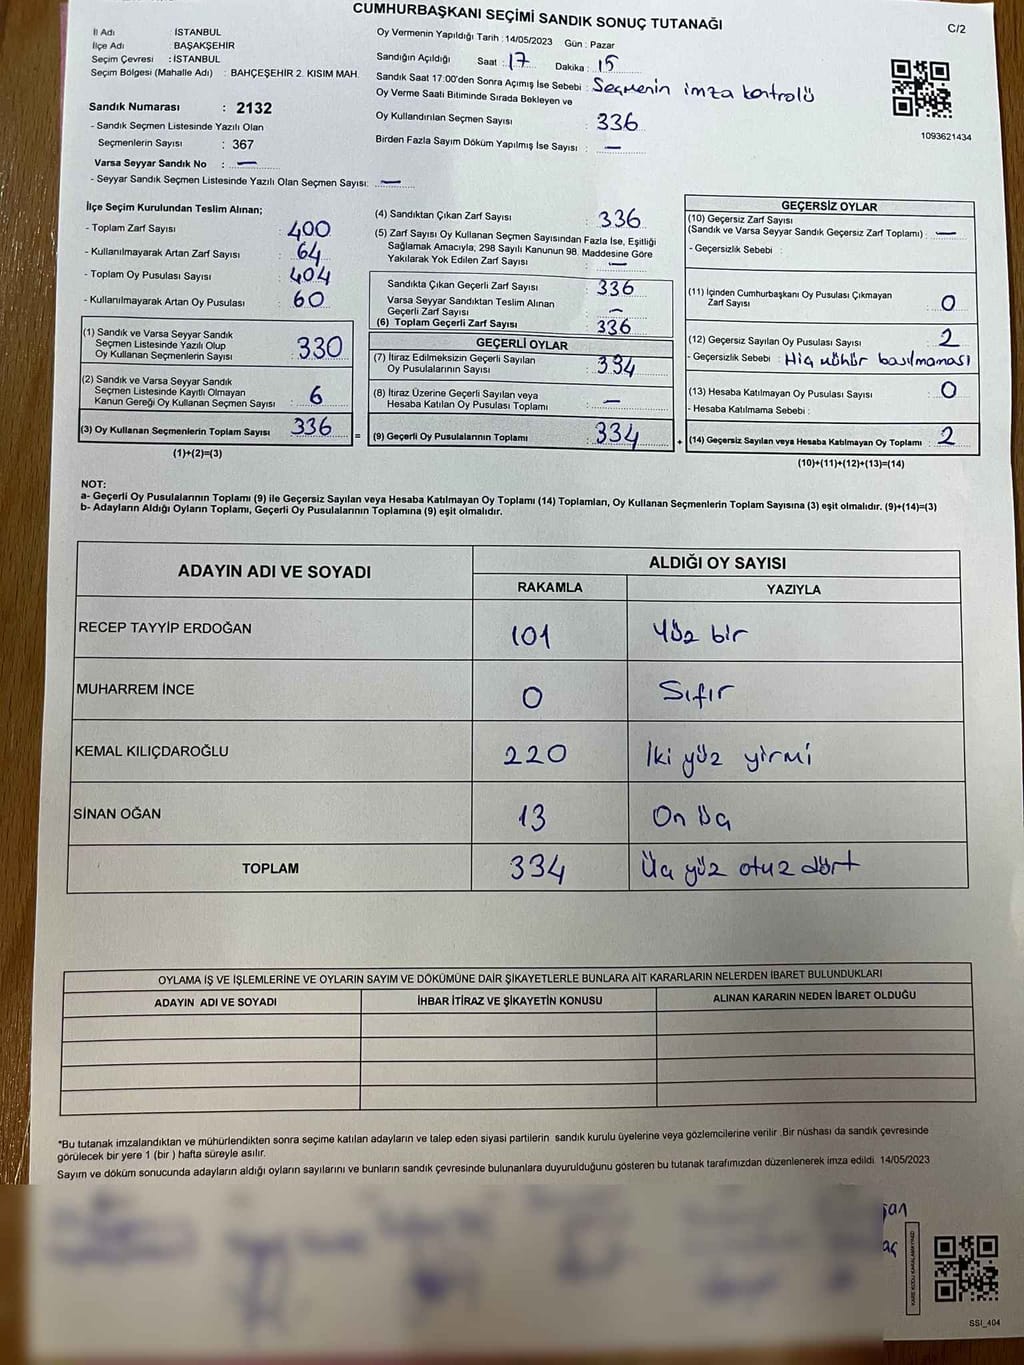 CUMHURBAŞKANI SEÇİMİ SANDIK SONUÇ TUTANAĞI
C/2
İl Adı İSTANBUL
İlçe Adı : BAŞAKŞEHİR
Seçim Çevresi : İSTANBUL
Seçim Bölgesi (Mahalle Adı) : BAHÇEŞEHİR 2. KISIM MAH.
Sandık Numarası : 2132
- Sandık Seçmen Listesinde Yazılı Olan
Seçmenlerin Sayısı : 367
Varsa Seyyar Sandık No : —
- Seyyar Sandık Seçmen Listesinde Yazılı Olan Seçmen Sayısı: —
Oy Vermenin Yapıldığı Tarih : 14/05/2023 Gün : Pazar
Sandığın Açıldığı Saat : 17 Dakika : 15
Sandık Saat 17:00'den Sonra Açımış İse Sebebi : Seçmenin imza kontrolü
Oy Verme Saati Bitiminde Sırada Bekleyen ve
Oy Kullandırılan Seçmen Sayısı : 336
Birden Fazla Sayım Döküm Yapılmış İse Sayısı : —
1093621434
İlçe Seçim Kurulundan Teslim Alınan;
- Toplam Zarf Sayısı : 400
- Kullanılmayarak Artan Zarf Sayısı : 64
- Toplam Oy Pusulası Sayısı : 404
- Kullanılmayarak Artan Oy Pusulası : 60
(1) Sandık ve Varsa Seyyar Sandık
Seçmen Listesinde Yazılı Olup
Oy Kullanan Seçmenlerin Sayısı : 330
(2) Sandık ve Varsa Seyyar Sandık
Seçmen Listesinde Kayıtlı Olmayan
Kanun Gereği Oy Kullanan Seçmen Sayısı : 6
(3) Oy Kullanan Seçmenlerin Toplam Sayısı : 336
(1)+(2)=(3)
(4) Sandıktan Çıkan Zarf Sayısı : 336
(5) Zarf Sayısı Oy Kullanan Seçmen Sayısından Fazla İse, Eşitliği
Sağlamak Amacıyla; 298 Sayılı Kanunun 98. Maddesine Göre
Yakılarak Yok Edilen Zarf Sayısı : —
Sandıkta Çıkan Geçerli Zarf Sayısı : 336
Varsa Seyyar Sandıktan Teslim Alınan
Geçerli Zarf Sayısı : —
(6) Toplam Geçerli Zarf Sayısı : 336
GEÇERLİ OYLAR
(7) İtiraz Edilmeksizin Geçerli Sayılan
Oy Pusulalarının Sayısı : 334
(8) İtiraz Üzerine Geçerli Sayılan veya
Hesaba Katılan Oy Pusulası Toplamı : —
= (9) Geçerli Oy Pusulalarının Toplamı : 334
GEÇERSİZ OYLAR
(10) Geçersiz Zarf Sayısı
(Sandık ve Varsa Seyyar Sandık Geçersiz Zarf Toplamı) : —
- Geçersizlik Sebebi :
(11) İçinden Cumhurbaşkanı Oy Pusulası Çıkmayan
Zarf Sayısı : 0
(12) Geçersiz Sayılan Oy Pusulası Sayısı : 2
- Geçersizlik Sebebi : Hiç mühür basılmaması
(13) Hesaba Katılmayan Oy Pusulası Sayısı : 0
- Hesaba Katılmama Sebebi :
+ (14) Geçersiz Sayılan veya Hesaba Katılmayan Oy Toplamı : 2
(10)+(11)+(12)+(13)=(14)
NOT:
a- Geçerli Oy Pusulalarının Toplamı (9) ile Geçersiz Sayılan veya Hesaba Katılmayan Oy Toplamı (14) Toplamları, Oy Kullanan Seçmenlerin Toplam Sayısına (3) eşit olmalıdır. (9)+(14)=(3)
b- Adayların Aldığı Oyların Toplamı, Geçerli Oy Pusulalarının Toplamına (9) eşit olmalıdır.
ADAYIN ADI VE SOYADI ALDIĞI OY SAYISI
RAKAMLA YAZIYLA
RECEP TAYYİP ERDOĞAN 101 Yüz bir
MUHARREM İNCE 0 Sıfır
KEMAL KILIÇDAROĞLU 220 İki yüz yirmi
SİNAN OĞAN 13 On üç
TOPLAM 334 Üç yüz otuz dört
OYLAMA İŞ VE İŞLEMLERİNE VE OYLARIN SAYIM VE DÖKÜMÜNE DAİR ŞİKAYETLERLE BUNLARA AİT KARARLARIN NELERDEN İBARET BULUNDUKLARI
ADAYIN ADI VE SOYADI İHBAR İTİRAZ VE ŞİKAYETİN KONUSU ALINAN KARARIN NEDEN İBARET OLDUĞU
*Bu tutanak imzalandıktan ve mühürlendikten sonra seçime katılan adayların ve talep eden siyasi partilerin sandık kurulu üyelerine veya gözlemcilerine verilir .Bir nüshası da sandık çevresinde
görülecek bir yere 1 (bir ) hafta süreyle asılır.
Sayım ve döküm sonucunda adayların aldığı oyların sayılarını ve bunların sandık çevresinde bulunanlara duyurulduğunu gösteren bu tutanak tarafımızdan düzenlenerek imza edildi. 14/05/2023
KARE KODU KARALAMAYINIZ!
SSI_404